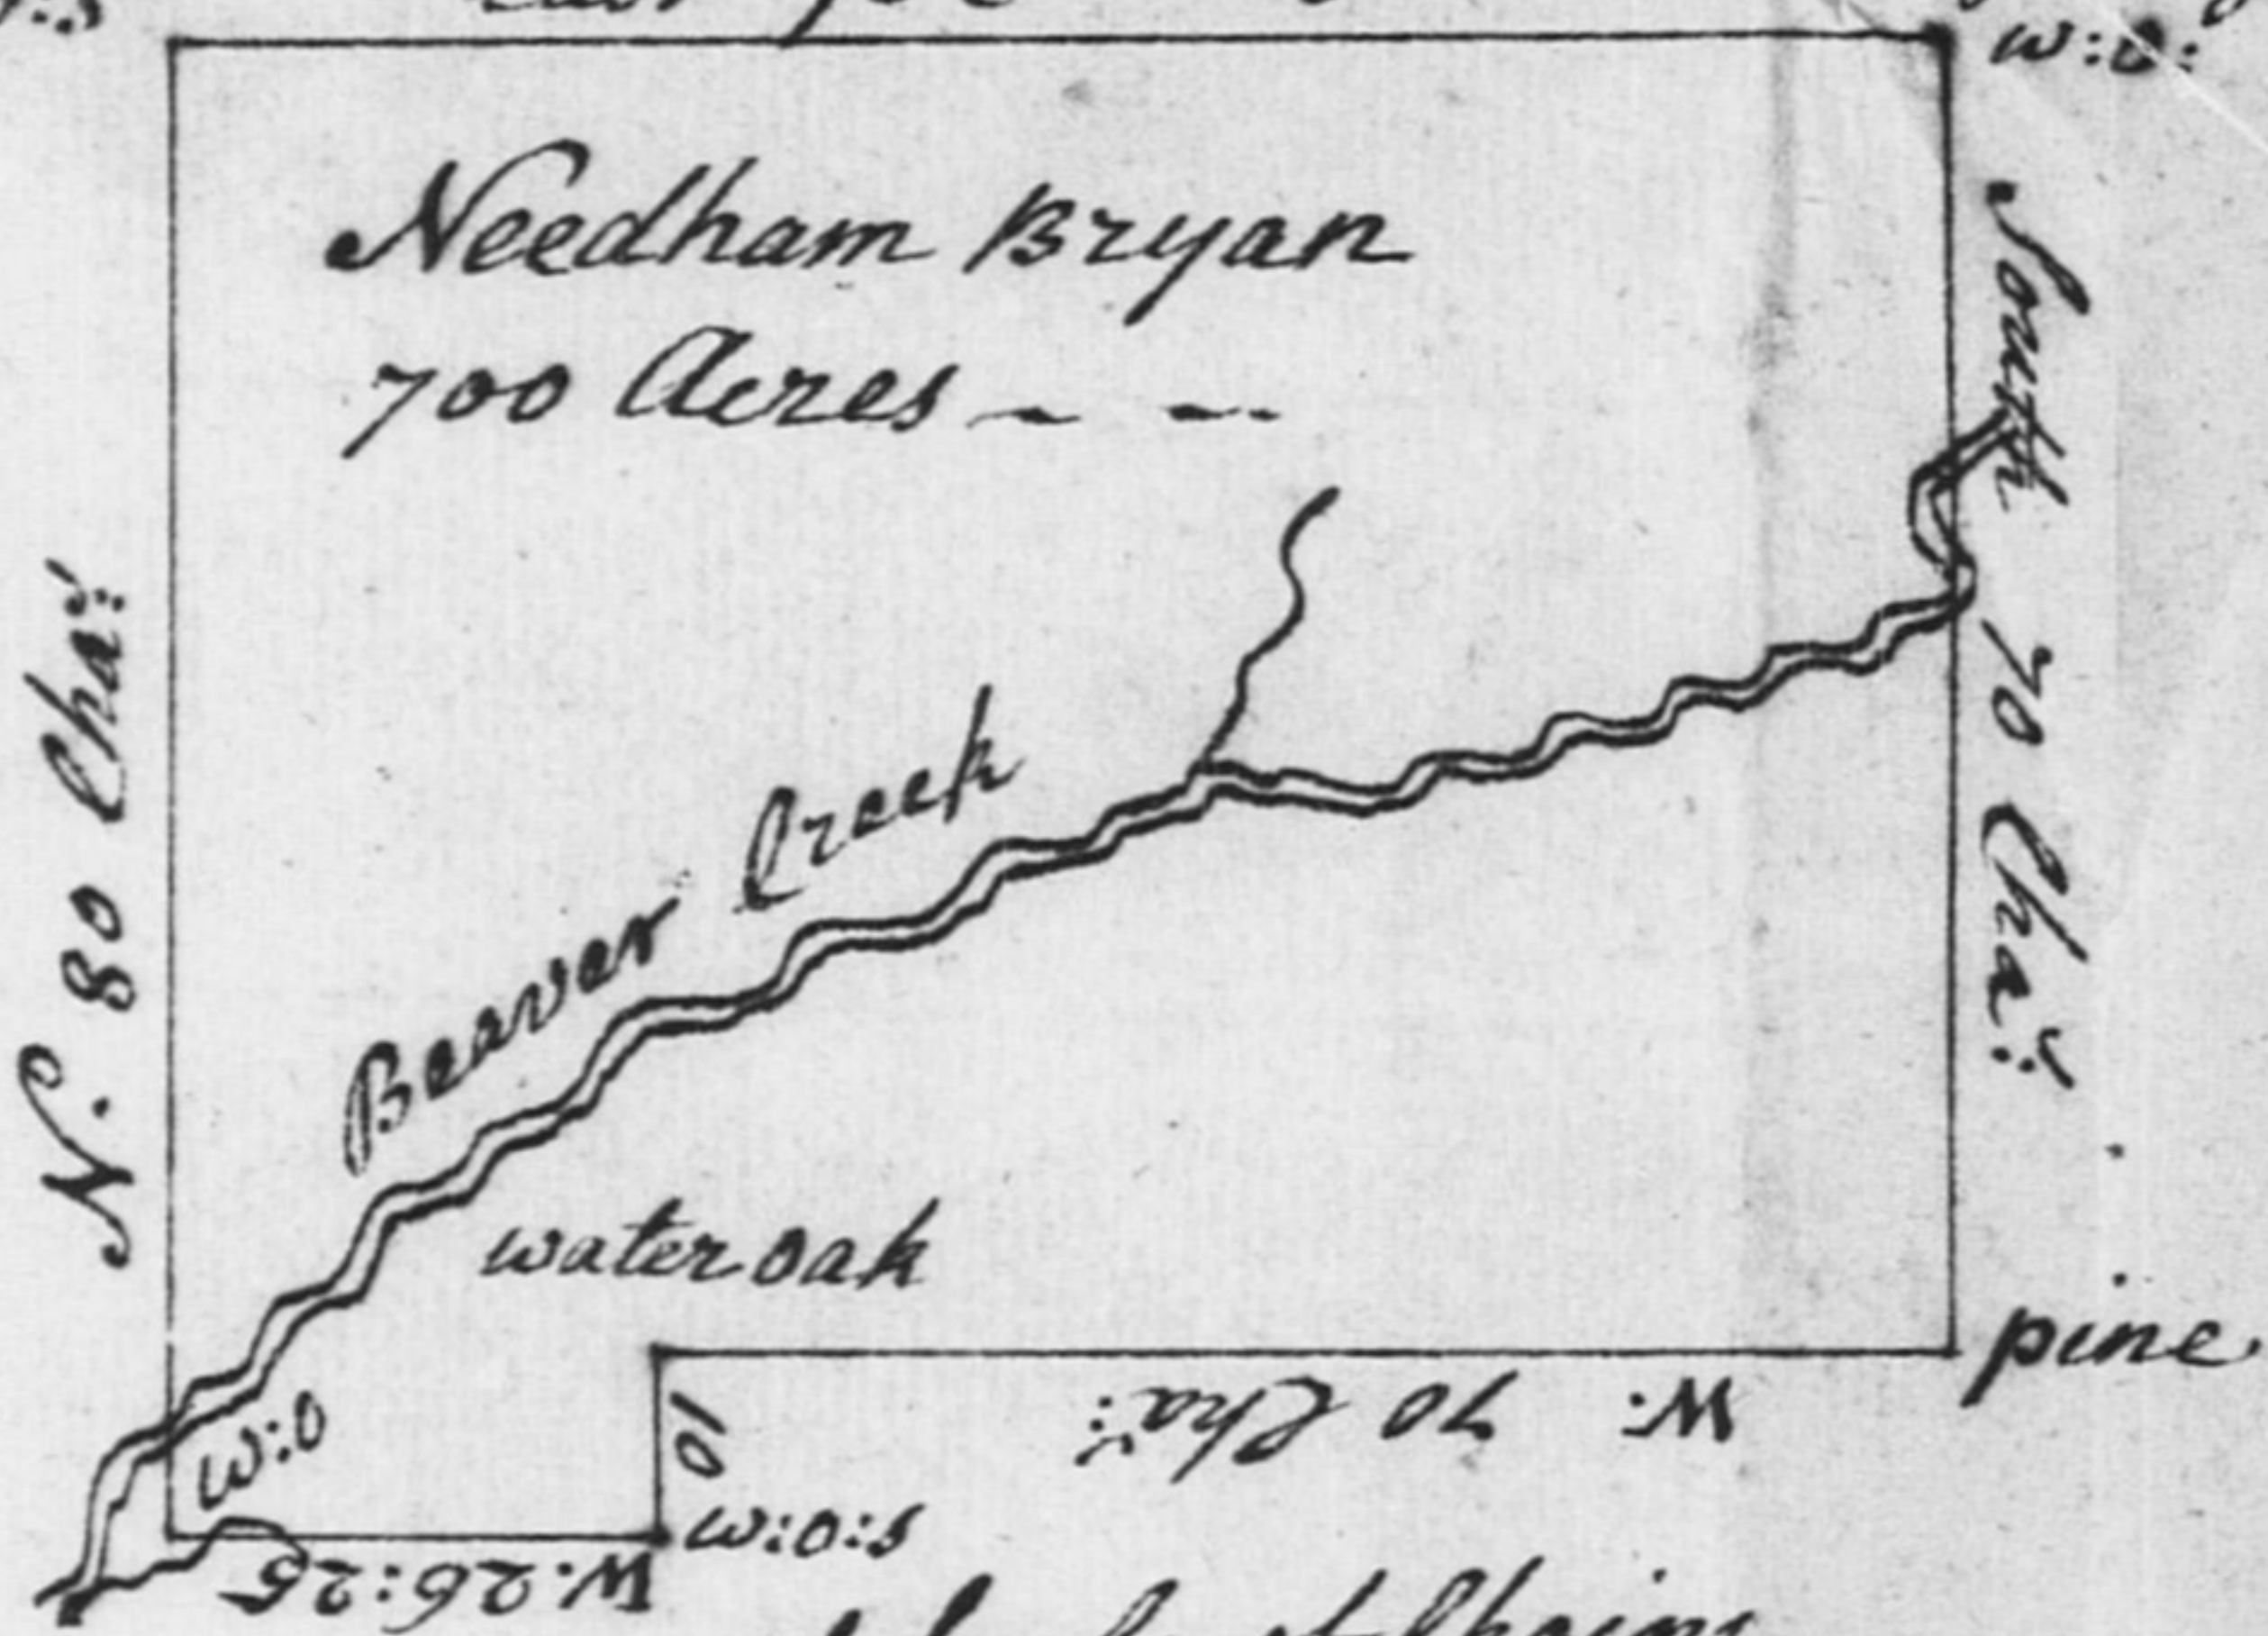 w:o:
Needham Bryan
700 Acres
South 70 Chas:
N. 80 Chas:
Beaver Creek
water oak
pine
W. 70 Chas:
10
w:o
w:o:s
W:26:25